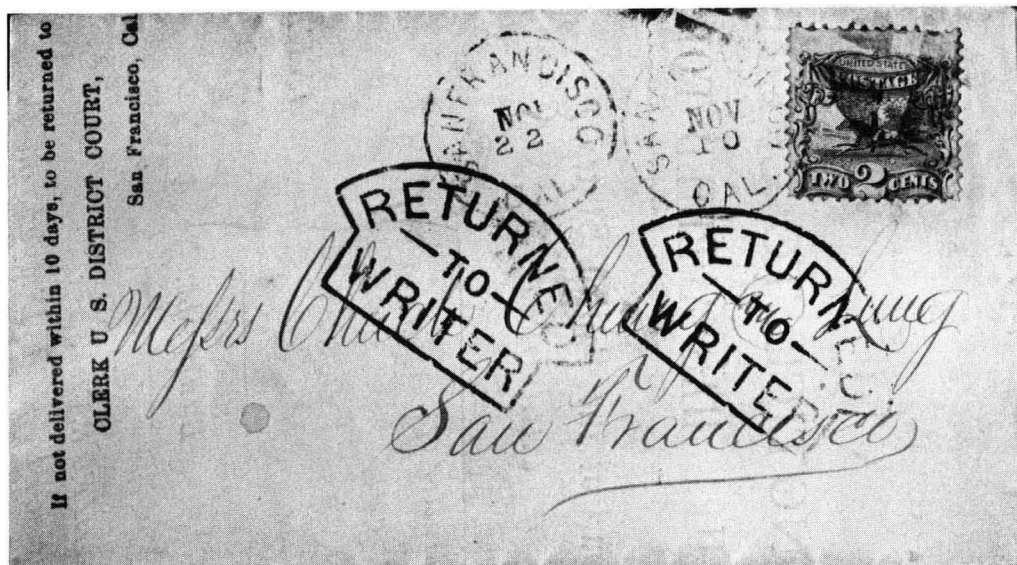 If not delivered within 10 days, to be returned to
CLERK U S. DISTRICT COURT,
San Francisco, Cal
SAN FRANCISCO
NOV
22
CAL
SAN
NOV
10
CAL.
UNITED STATES
POSTAGE
TWO 2 CENTS
RETURNED
TO
WRITER
RETURNED
TO
WRITER
Messrs Chung Lung
San Francisco